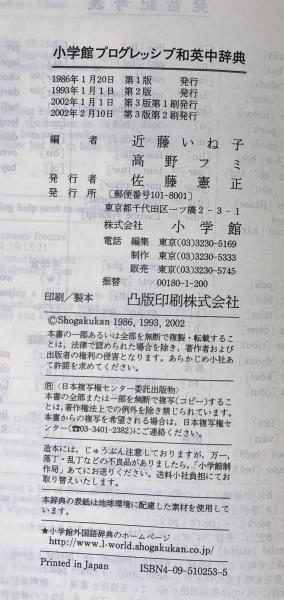 小学館プログレッシブ和英中辞典
1986年1月20日 第1版 発行
1993年1月1日 第2版 発行
2002年1月1日 第3版第1刷発行
2002年2月10日 第3版第2刷発行
編者 近藤いね子
高野フミ
発行者 佐藤憲正
発行所 〔郵便番号101-8001〕
東京都千代田区一ツ橋2-3-1
株式会社 小学館
電話 編集 東京(03)3230-5169
制作 東京(03)3230-5333
販売 東京(03)3230-5745
振替 00180-1-200
印刷/製本 凸版印刷株式会社
©Shogakukan 1986, 1993, 2002
本書の一部あるいは全部を無断で複製・転載するこ
とは、法律で認められた場合を除き、著作者および
出版者の権利の侵害となります。あらかじめ小社あ
て許諾を求めてください。
Ⓡ〈日本複写権センター委託出版物〉
本書の全部または一部を無断で複写(コピー)するこ
とは、著作権法上での例外を除き禁じられています。
本書からの複写を希望される場合は、日本複写権セ
ンター(☎03-3401-2382)にご連絡ください。
造本には、じゅうぶん注意しておりますが、万一、
落丁・乱丁などの不良品がありましたら、「小学館制
作局」あてにお送りください。送料小社負担にてお
取り替えいたします。
本辞典の表紙は地球環境に配慮した素材を使用して
います。
★小学館外国語辞典のホームページ
http://www.l-world.shogakukan.co.jp/
Printed in Japan ISBN4-09-510253-5